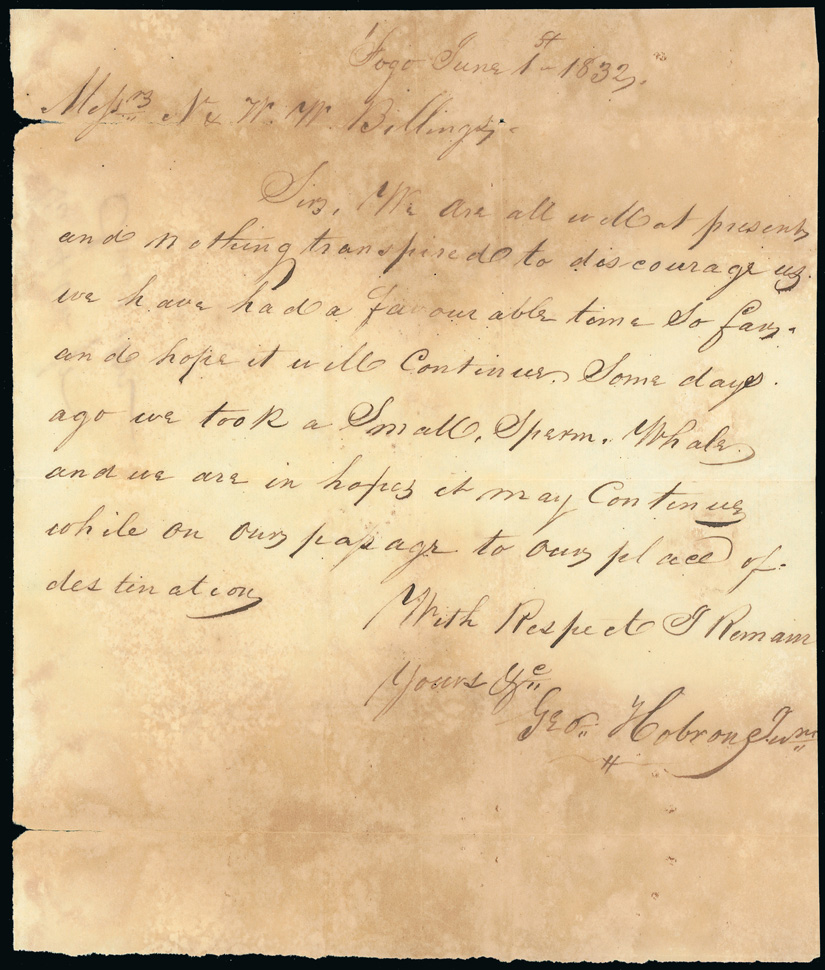 Fogo June 1st 1832,
Messrs N & W. W. Billings,
Sirs, We are all well at present
and nothing transpired to discourage us
we have had a favourable time So far,
and hope it will Continue, Some days
ago we took a Small, Sperm, Whale
and we are in hopes it may Continue
while on our passage to our place of
destination
With Respect I Remain
Yours &c
Geo. Hobron Junr